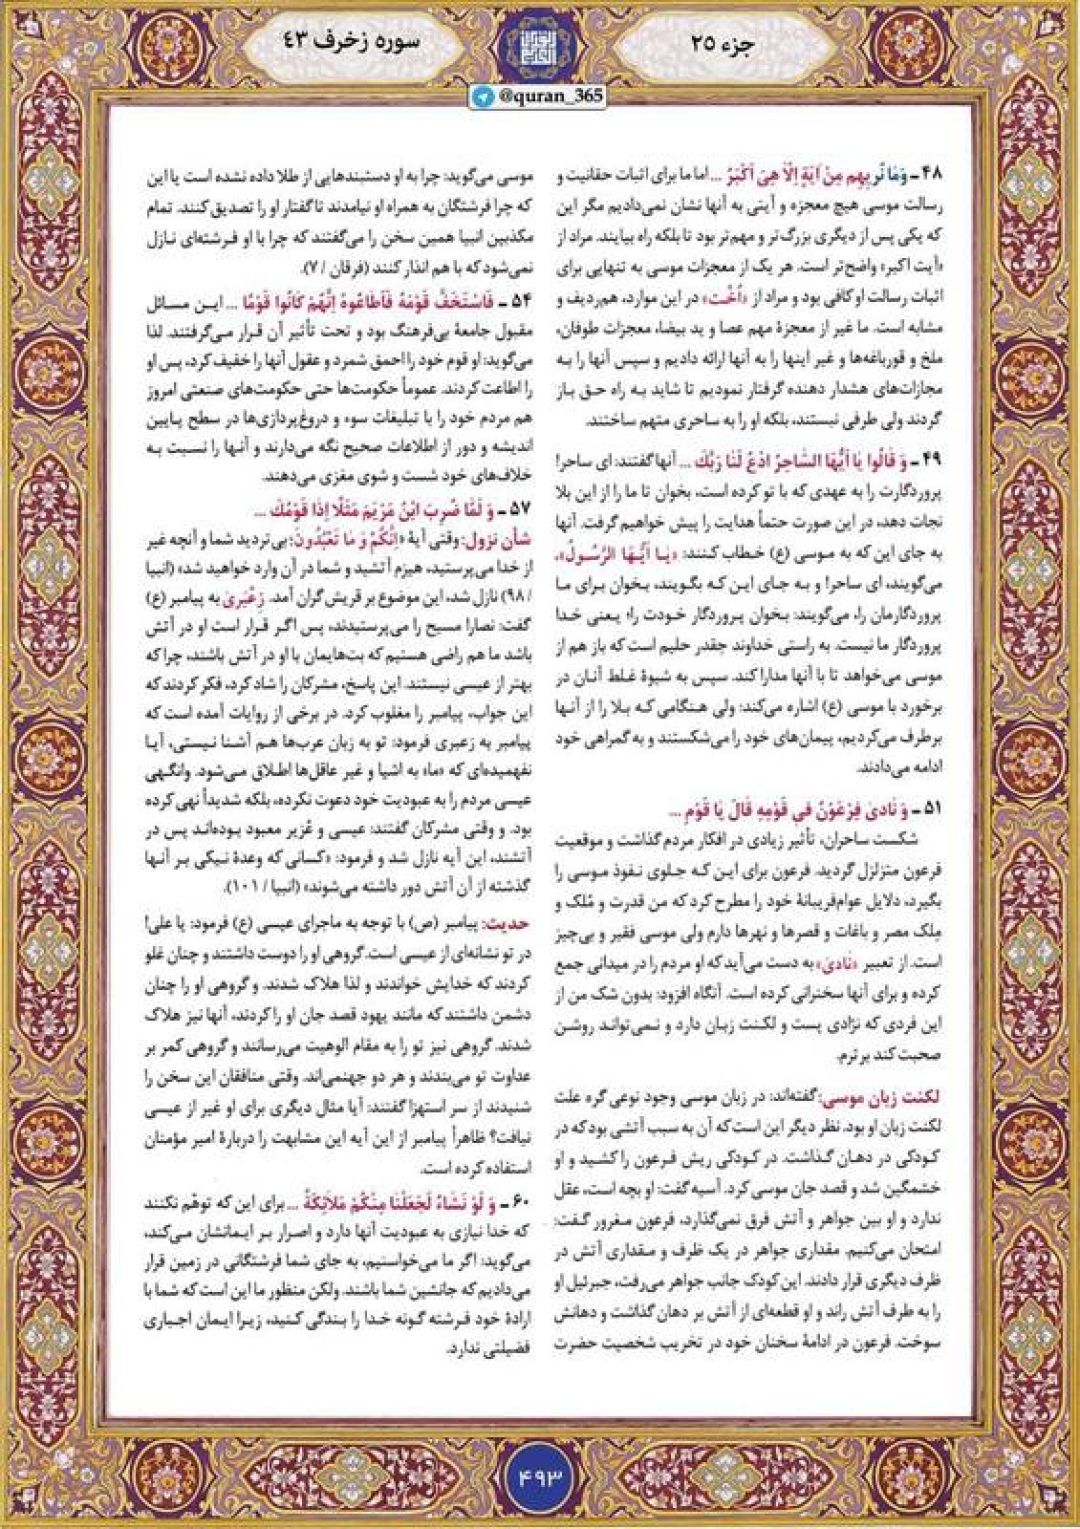 جزء ۲۵
سوره زخرف ۴۳
@quran_365
۴۸ ـ وَمَا نُرِيهِم مِنْ آيَةٍ اِلَّا هِيَ اَكْبَرُ ... اما ما برای اثبات حقانیت و
رسالت موسی هیچ معجزه و آیتی به آنها نشان نمی‌دادیم مگر این
که یکی پس از دیگری بزرگ‌تر و مهم‌تر بود تا بلکه راه بیایند. مراد از
«آیت اکبر» واضح‌تر است. هر یک از معجزات موسی به تنهایی برای
اثبات رسالت او کافی بود و مراد از «اُخْت» در این موارد، هم‌ردیف و
مشابه است. ما غیر از معجزهٔ مهم عصا و ید بیضا، معجزات طوفان،
ملخ و قورباغه‌ها و غیر اینها را به آنها ارائه دادیم و سپس آنها را به
مجازات‌های هشدار دهنده گرفتار نمودیم تا شاید به راه حق باز
گردند ولی طرفی نبستند، بلکه او را به ساحری متهم ساختند.
۴۹ ـ وَ قَالُوا يَا اَيُّهَا السَّاحِرُ ادْعُ لَنَا رَبَّكَ ... آنها گفتند: ای ساحر!
پروردگارت را به عهدی که با تو کرده است، بخوان تا ما را از این بلا
نجات دهد، در این صورت حتماً هدایت را پیش خواهیم گرفت. آنها
به جای این که به موسی (ع) خطاب کنند: «يَا اَيُّهَا الرَّسُولُ»،
می‌گویند، ای ساحر! و به جای این که بگویند، بخوان برای ما
پروردگارمان را، می‌گویند: بخوان پروردگار خودت را؛ یعنی خدا
پروردگار ما نیست. به راستی خداوند چقدر حلیم است که باز هم از
موسی می‌خواهد تا با آنها مدارا کند. سپس به شیوهٔ غلط آنان در
برخورد با موسی (ع) اشاره می‌کند: ولی هنگامی که بلا را از آنها
برطرف می‌کردیم، پیمان‌های خود را می‌شکستند و به گمراهی خود
ادامه می‌دادند.
۵۱ ـ وَ نَادَى فِرْعَوْنُ فِي قَوْمِهِ قَالَ يَا قَوْمِ ...
شکست ساحران، تأثیر زیادی در افکار مردم گذاشت و موقعیت
فرعون متزلزل گردید. فرعون برای این که جلوی نفوذ موسی را
بگیرد، دلایل عوام‌فریبانهٔ خود را مطرح کرد که من قدرت و مُلک و
مِلک مصر و باغات و قصرها و نهرها دارم ولی موسی فقیر و بی‌چیز
است. از تعبیر «نَادَى» به دست می‌آید که او مردم را در میدانی جمع
کرده و برای آنها سخنرانی کرده است. آنگاه افزود: بدون شک من از
این فردی که نژادی پست و لکنت زبان دارد و نمی‌تواند روشن
صحبت کند برترم.
لکنت زبان موسی: گفته‌اند: در زبان موسی وجود نوعی گره علت
لکنت زبان او بود. نظر دیگر این است که آن به سبب آتشی بود که در
کودکی در دهان گذاشت. در کودکی ریش فرعون را کشید و او
خشمگین شد و قصد جان موسی کرد. آسیه گفت: او بچه است، عقل
ندارد و او بین جواهر و آتش فرق نمی‌گذارد، فرعون مغرور گفت:
امتحان می‌کنیم. مقداری جواهر در یک ظرف و مقداری آتش در
ظرف دیگری قرار دادند. این کودک جانب جواهر می‌رفت، جبرئیل او
را به طرف آتش راند و او قطعه‌ای از آتش بر دهان گذاشت و دهانش
سوخت. فرعون در ادامهٔ سخنان خود در تخریب شخصیت حضرت
موسی می‌گوید: چرا به او دستبندهایی از طلا داده نشده است یا این
که چرا فرشتگان به همراه او نیامدند تا گفتار او را تصدیق کنند. تمام
مکذبین انبیا همین سخن را می‌گفتند که چرا با او فرشته‌ای نازل
نمی‌شود که با هم انذار کنند (فرقان / ۷).
۵۴ ـ فَاسْتَخَفَّ قَوْمَهُ فَاَطَاعُوهُ اِنَّهُمْ كَانُوا قَوْمًا ... این مسائل
مقبول جامعهٔ بی‌فرهنگ بود و تحت تأثیر آن قرار می‌گرفتند. لذا
می‌گوید: او قوم خود را احمق شمرد و عقول آنها را خفیف کرد، پس او
را اطاعت کردند. عموماً حکومت‌ها حتی حکومت‌های صنعتی امروز
هم مردم خود را با تبلیغات سوء و دروغ‌پردازی‌ها در سطح پایین
اندیشه و دور از اطلاعات صحیح نگه می‌دارند و آنها را نسبت به
خلاف‌های خود شست و شوی مغزی می‌دهند.
۵۷ ـ وَ لَمَّا ضُرِبَ ابْنُ مَرْيَمَ مَثَلًا اِذَا قَوْمُكَ ...
شأن نزول: وقتی آیهٔ «اِنَّكُمْ وَ مَا تَعْبُدُونَ: بی‌تردید شما و آنچه غیر
از خدا می‌پرستید، هیزم آتشید و شما در آن وارد خواهید شد» (انبیا
/ ۹۸) نازل شد، این موضوع بر قریش گران آمد. زعْبَری به پیامبر (ع)
گفت: نصارا مسیح را می‌پرستیدند، پس اگر قرار است او در آتش
باشد ما هم راضی هستیم که بت‌هایمان با او در آتش باشند، چرا که
بهتر از عیسی نیستند. این پاسخ، مشرکان را شاد کرد، فکر کردند که
این جواب، پیامبر را مغلوب کرد. در برخی از روایات آمده است که
پیامبر به زعبری فرمود: تو به زبان عرب‌ها هم آشنا نیستی، آیا
نفهمیده‌ای که «ما» به اشیا و غیر عاقل‌ها اطلاق می‌شود. وانگهی
عیسی مردم را به عبودیت خود دعوت نکرده، بلکه شدیداً نهی کرده
بود. و وقتی مشرکان گفتند: عیسی و عُزیر معبود بوده‌اند پس در
آتشند، این آیه نازل شد و فرمود: «کسانی که وعدهٔ نیکی بر آنها
گذشته از آن آتش دور داشته می‌شوند» (انبیا / ۱۰۱).
حدیث: پیامبر (ص) با توجه به ماجرای عیسی (ع) فرمود: یا علی!
در تو نشانه‌ای از عیسی است. گروهی او را دوست داشتند و چنان غلو
کردند که خدایش خواندند و لذا هلاک شدند. و گروهی او را چنان
دشمن داشتند که مانند یهود قصد جان او را کردند، آنها نیز هلاک
شدند. گروهی نیز تو را به مقام الوهیت می‌رسانند و گروهی کمر بر
عداوت تو می‌بندند و هر دو جهنمی‌اند. وقتی منافقان این سخن را
شنیدند از سر استهزا گفتند: آیا مثال دیگری برای او غیر از عیسی
نیافت؟ ظاهراً پیامبر از این آیه این مشابهت را دربارهٔ امیر مؤمنان
استفاده کرده است.
۶۰ ـ وَ لَوْ نَشَاءُ لَجَعَلْنَا مِنْكُمْ مَلَائِكَةً ... برای این که توهّم نکنند
که خدا نیازی به عبودیت آنها دارد و اصرار بر ایمانشان می‌کند،
می‌گوید: اگر ما می‌خواستیم، به جای شما فرشتگانی در زمین قرار
می‌دادیم که جانشین شما باشند. ولکن منظور ما این است که شما با
ارادهٔ خود فرشته گونه خدا را بندگی کنید، زیرا ایمان اجباری
فضیلتی ندارد.
۴۹۳